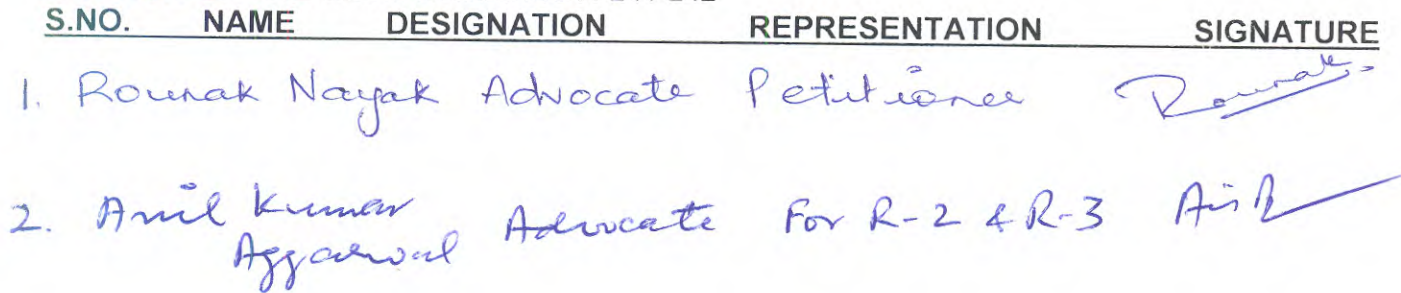 S.NO. NAME DESIGNATION REPRESENTATION SIGNATURE
1. Rounak Nayak Advocate Petitioner Rounak
2. Anil Kumar Advocate For R-2 & R-3
Aggarwal